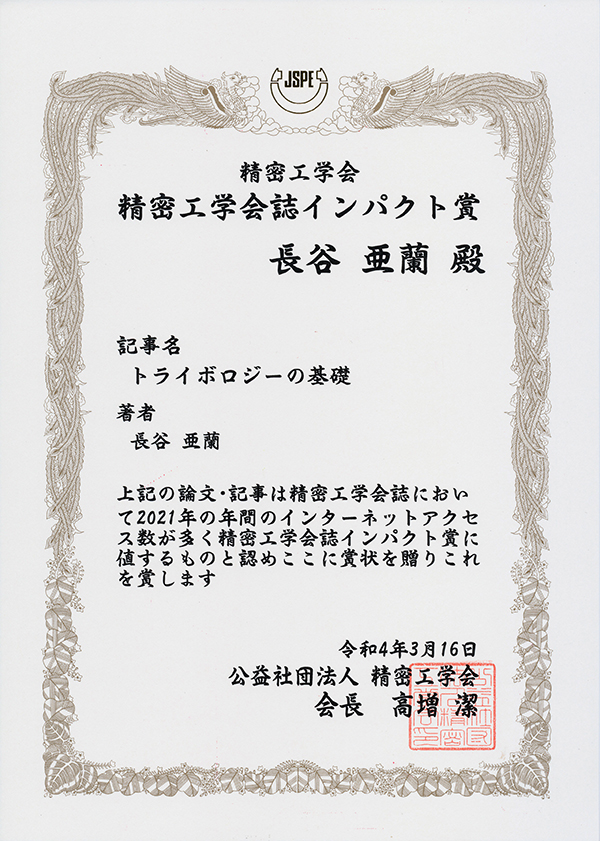 JSPE
精密工学会
精密工学会誌インパクト賞
長谷 亜蘭 殿
記事名
トライボロジーの基礎
著者
長谷 亜蘭
上記の論文・記事は精密工学会誌におい
て2021年の年間のインターネットアクセ
ス数が多く精密工学会誌インパクト賞に
値するものと認めここに賞状を贈りこれ
を賞します
令和4年3月16日
公益社団法人 精密工学会
会長 高増 潔